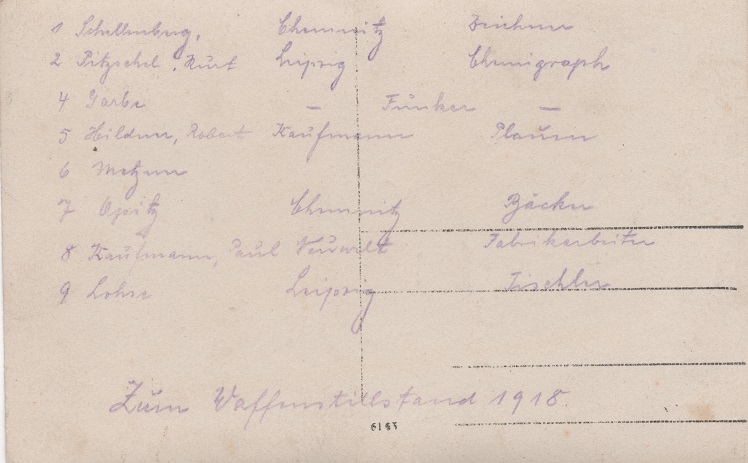 1 Schellenberg, Chemnitz Zeichner
2 Pitzschel, Kurt Leipzig Chemigraph
4 Garbe — Funker —
5 Hildner, Robert Kaufmann Plauen
6 Metzner
7 Opitz Chemnitz Bäcker
8 Kaufmann, Paul Neuwelt Fabrikarbeiter
9 Lohse Leipzig Tischler
Zum Waffenstillstand 1918.